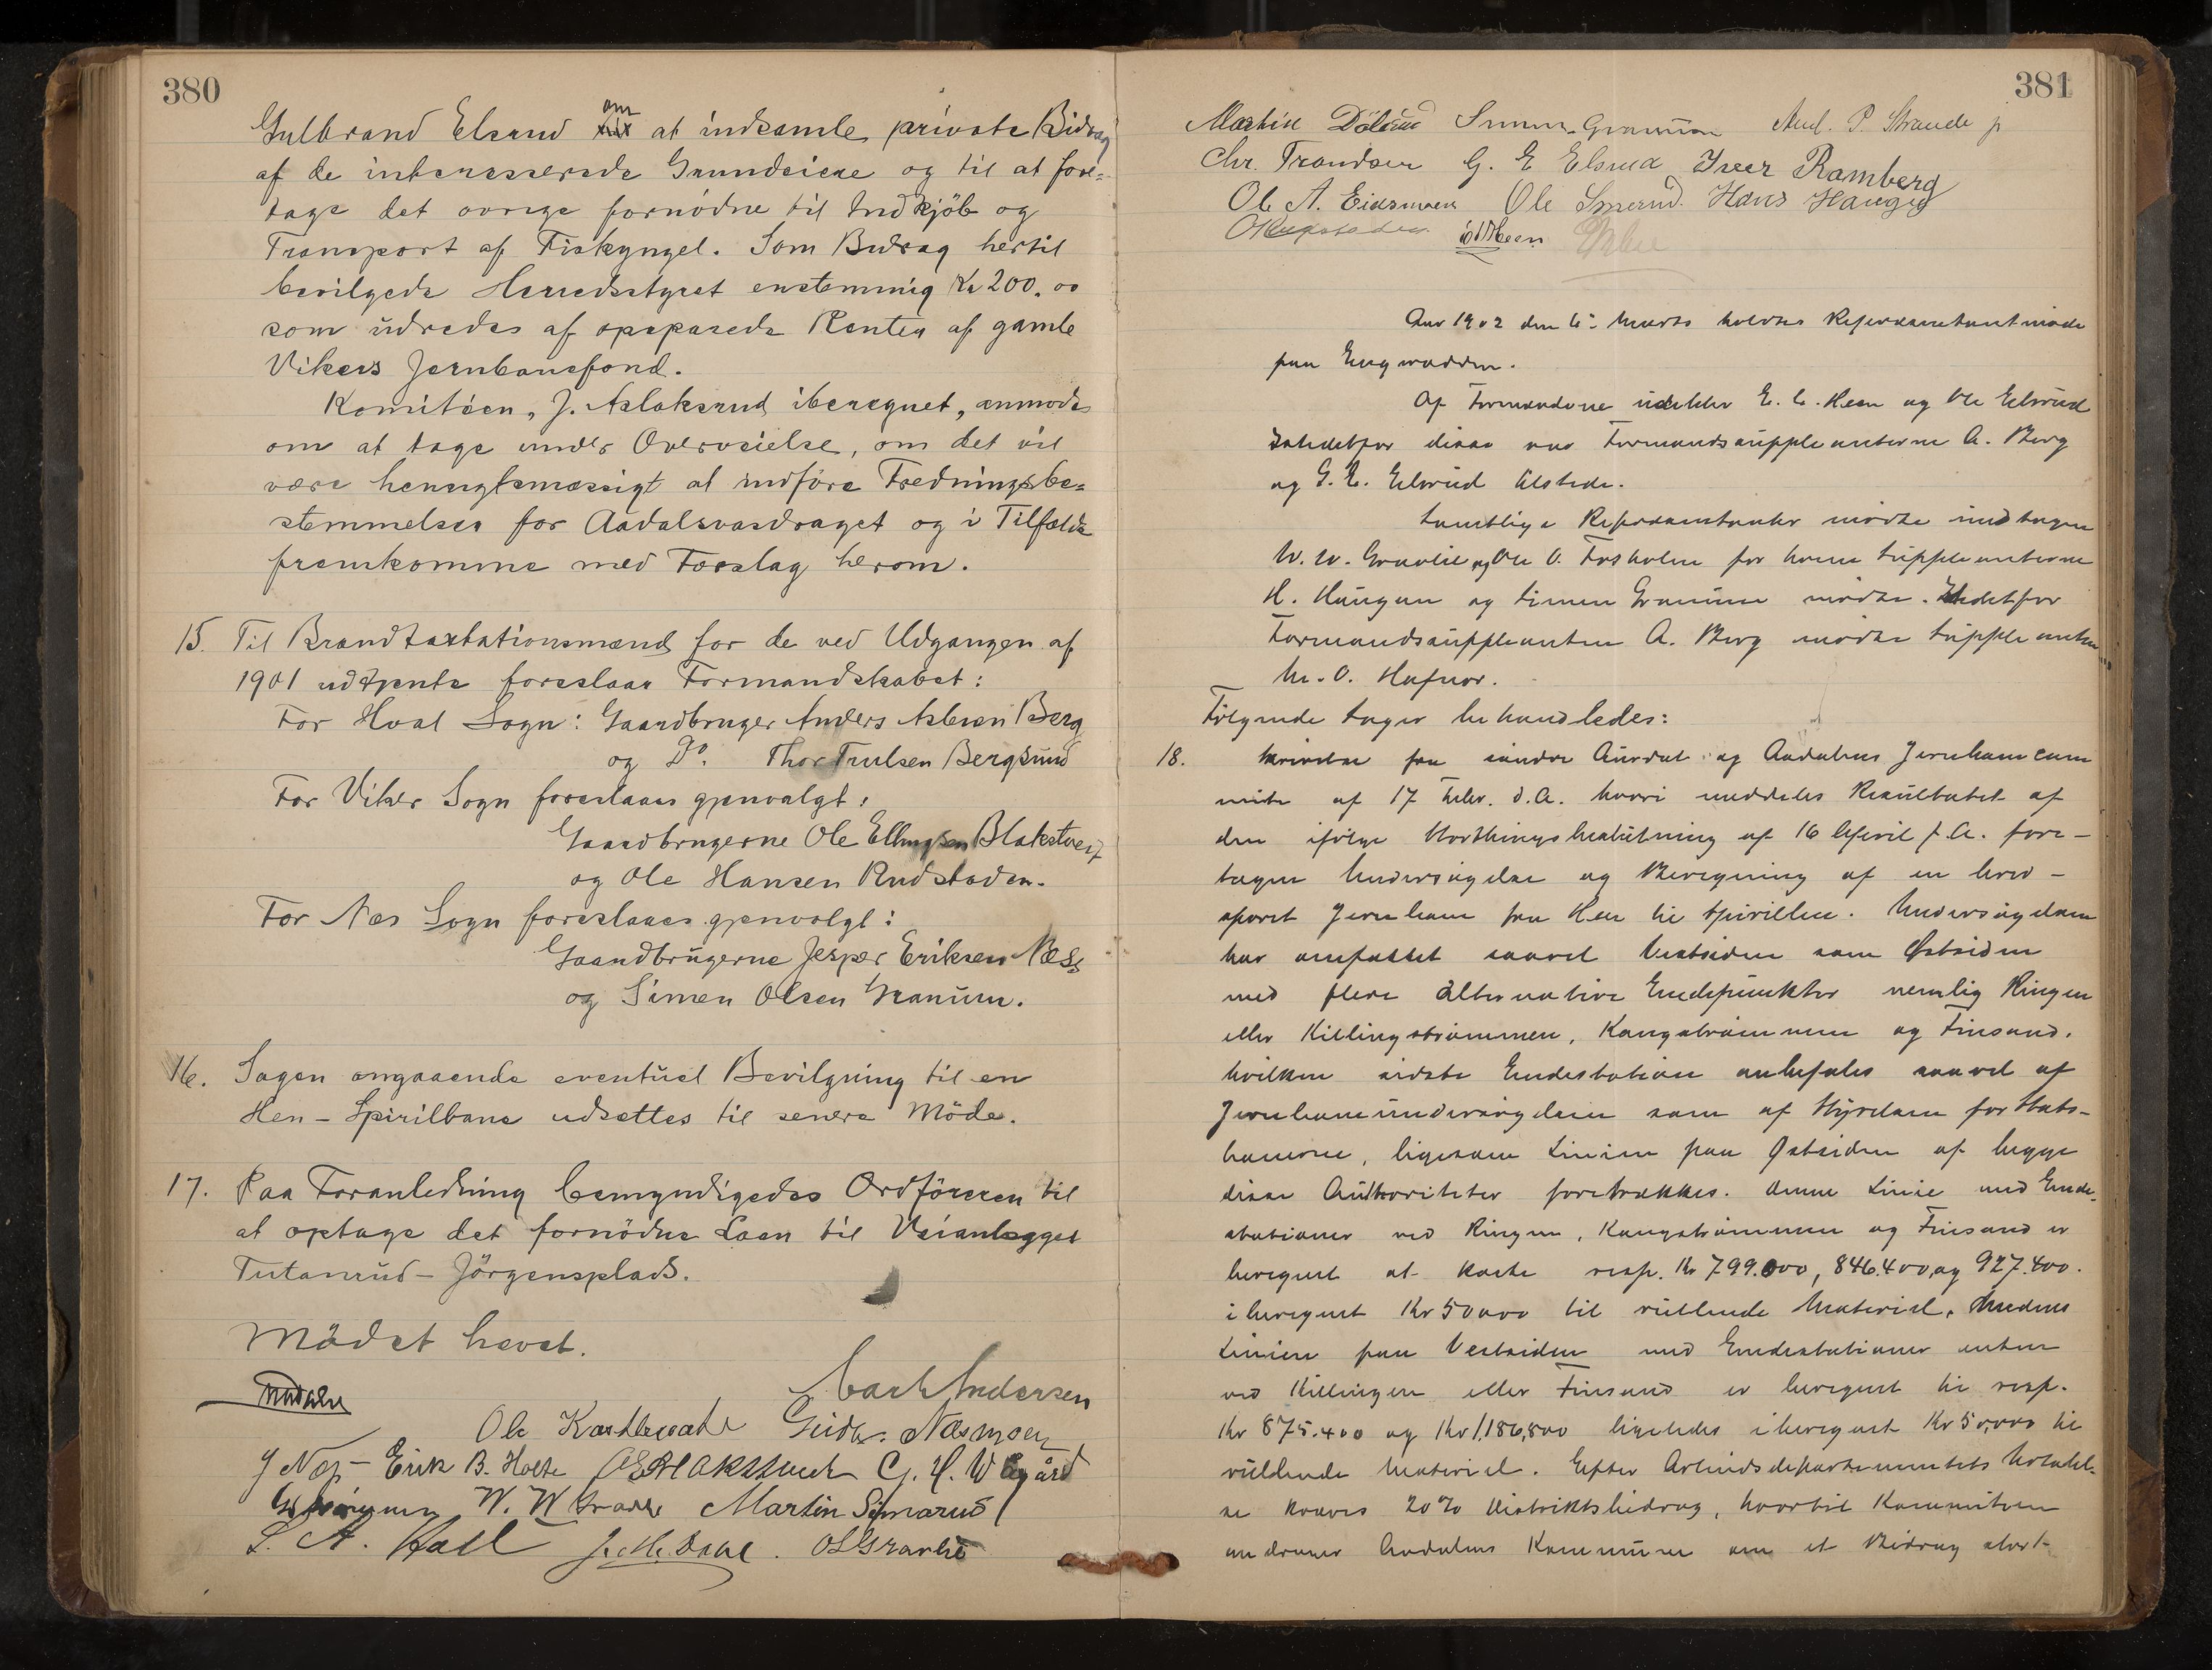 380
Gulbrand Elsrud om at indsamle private Bidrag
af de interesserede Grundeiere og til at fore=
tage det øvrige fornødne til Indkjöb og
Transport af Fiskyngel. Som Bidrag hertil
bevilgede Herredsstyret enstemmig Kr 200.00
som üdredes af opsparede Renter af gamle
Vikers Jernbanefond.
Komitéen, J. Aslaksrud iberegnet, anmodes
om at tage under Overveielse, om det vil
være hensigtsmæssigt at indføre Fredningsbe=
stemmelser for Aadalsvasdraget og i Tilfælde
fremkomme med Forslag herom.
15. Til Brandtaxtationsmænd for de ved Udgangen af
1901 udtrente foreslaar Formandskabet:
For Hval Sogn: Gaardbruger Anders Asbiørn Berg
og Do. Thor Trulsen Bergsund
For Viker Sogn foreslaaes gjenvalgt:
Gaardbrugerne Ole Ellingsen Blakstveit
og Ole Hansen Rudstaden.
For Nes Sogn foreslaaes gjenvalgt:
Gaardbrügerne Jesper Eriksen Næss
og Simen Olsen Granum.
16. Sagen angaaende eventuel Bevilgning til en
Hen - Spirilbane udsættes til senere Möde.
17. Paa Foranledning bemyndigedes Ordföreren til
at optage det fornödne Laan til Veianlægget
Tutanrud - Jörgensplads.
Mödet hævet.
Carl Andersen
Ole Gudbr. Næsmoen
J Næs Erik B. Holte
W. W. Martin Semmerud
L. A. J. M. Dahl. O L Gravlie
381
Martin Simen Granum And. P. Strande jr
Chr. Trondsen G. E Elsrud Iver Ramberg
Ole A. Eidsmoen Ole Hans Haugen
Aar 1902 den 6te Marts holdtes Repræsentantmöde
paa Engnodden.
Af Formændene udebler E. C. Heen og Ole Elsrüd
Istedetfor disse var Formandssuppleanterne A. Berg
og G. E. Elsrüd tilstede.
Samtlige Repræsentanter mödte undtagen
W. W. Gravlie og Ole O. Fosholm for hvem Süppleanterne
H. Haugen og Simen Granum mödte. Istedetfor
Formandssüppleanten A. Berg mödte Süppleanten
M. O. Hafnor.
Fölgende Sager behandledes:
18. Skrivelse fra söndre Aürdal og Aadalens Jernbanecom
mite af 17 Febr. d.A. hvori meddeles Resültatet af
den ifölge Storthingsbeslütning af 16 April f.A. fore-
tagne Undersögelse og Beregning af en bred-
sporet Jernbane fra Hen til Spirillen. Undersögelsen
har omfattet saavel Vestsiden som Østsiden
med flere alternative Endepünkter nemlig Ringen
eller Killingströmmen, Kongströmmen og Finsand,
hvilken sidste Endestation anbefales saavel af
Jernbaneündersögelsen som af Styrelsen for Stats-
banerne, ligesom Linien paa Østsiden af begge
disse Aüthoriteter foretrækkes. Denne Linie med Ende-
stationer ved Ringen, Kongströmmen og Finsand er
beregnet at koste resp. Kr 799.000, 846.400, og 927.400.
iberegnet Kr 50000 til rüllende Materiel. Medens
Linien paa Vestsiden med Endestationer enten
ved Killingen eller Finsand er beregnet til resp.
Kr 875.400 og Kr 1,186,800 ligeledes iberegnet Kr 50,000 til
rüllende Materiel. Efter Arbeidsdepartementets Uttalel-
se kræves 20% Distriktsbidrag, hvortil Kommiteen
andrager Aadalens Kommüne om et Bidrag stort